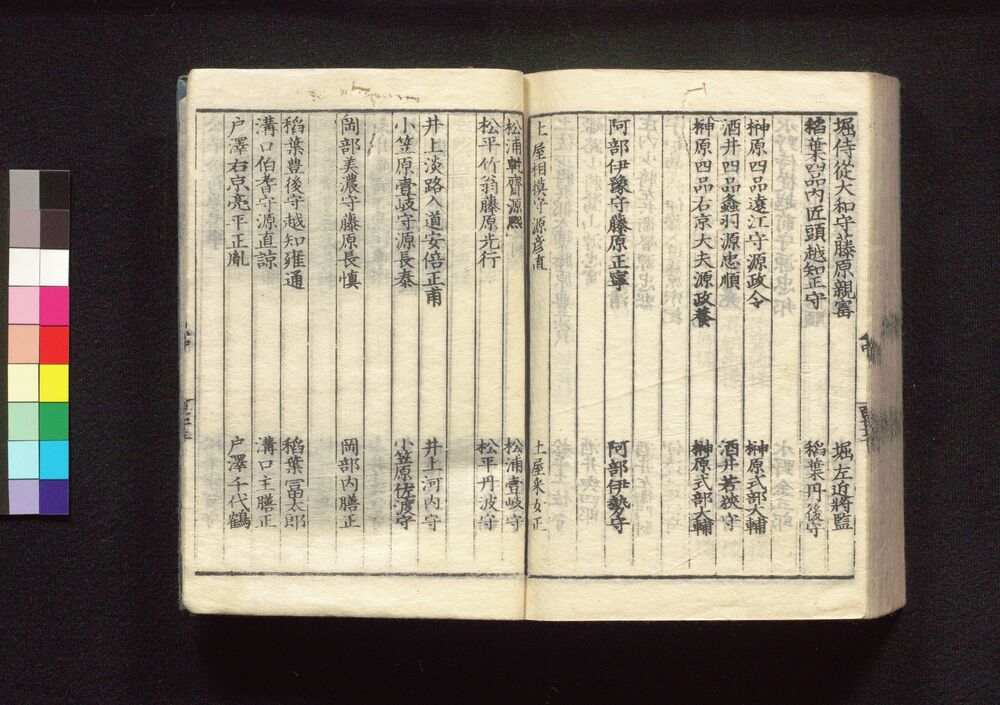 堀侍從大和守藤原親寚 堀左近將監
稻葉四品内匠頭越知正守 稻葉丹後守
榊原四品遠江守源政令 榊原式部大輔
酒井四品鑫羽源忠順 酒井若狹守
榊原四品右京大夫源政養 榊原式部大輔
阿部伊豫守藤原正寧 阿部伊勢守
土屋相摸守源彦直 土屋采女正
松浦乾齋源熈 松浦壹岐守
松平竹翁藤原光行 松平丹波守
井上淡路入道安倍正甫 井上河内守
小笠原壹岐守源長泰 小笠原佐度守
岡部美濃守藤原長愼 岡部内膳正
稻葉豊後守越知雍通 稻葉冨太郎
溝口伯耆守源直諒 溝口主膳正
户澤右京亮平正胤 户澤千代鶴